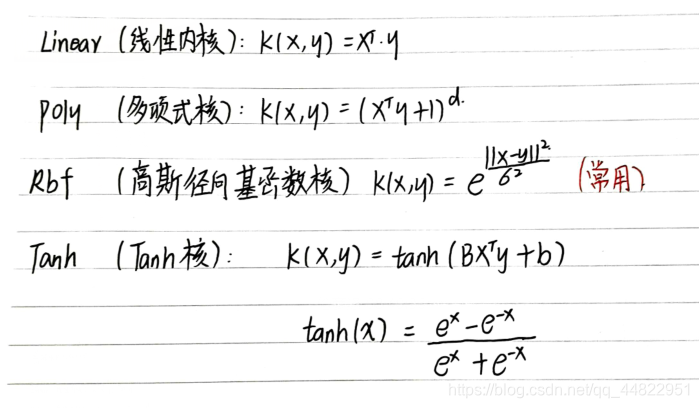 Linear (线性内核): K(x,y) = xᵀ·y
poly (多项式核): K(x,y) = (xᵀy+1)ᵈ·
Rbf (高斯径向基函数核) K(x,y) = e^(||x-y||²/6²) (常用)
Tanh (Tanh核): K(x,y) = tanh(BXᵀy+b)
tanh(x) = (eˣ-e⁻ˣ)/(eˣ+e⁻ˣ)
https://blog.csdn.net/qq_44822951